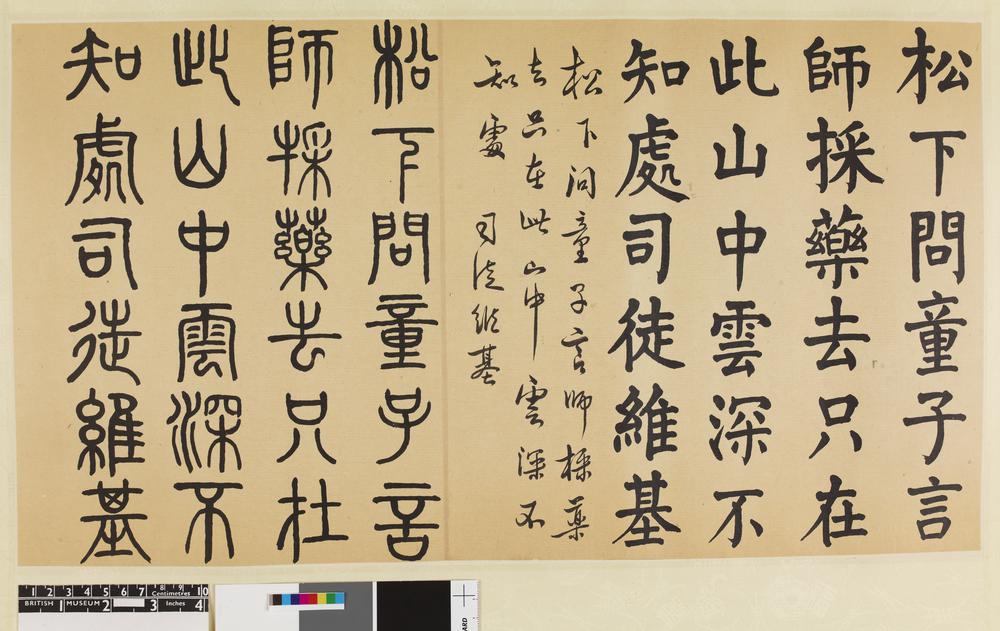 松下問童子言
師採藥去只在
此山中雲深不
知處司徒維基
松下问童子言师採藥
去只在此山中雲深不
知處 司徒維基
松下問童子言
師採藥去只杜
此山中雲深不
知處司徒維基
1 2 3 4 5 6 7 8 9 10
Centimetres
BRITISH 1 MUSEUM 2 3 Inches 4